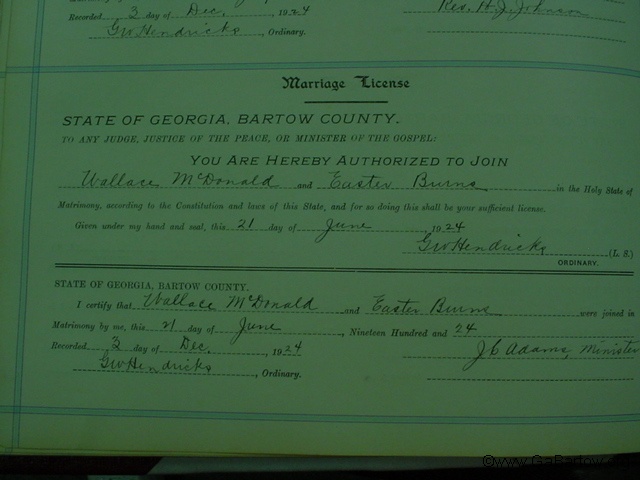 Recorded 3 day of Dec. 1924
Rev. H. J. Johnson
GW Hendricks, Ordinary.
Marriage License
STATE OF GEORGIA, BARTOW COUNTY.
TO ANY JUDGE, JUSTICE OF THE PEACE, OR MINISTER OF THE GOSPEL:
YOU ARE HEREBY AUTHORIZED TO JOIN
Wallace McDonald and Easter Burns in the Holy State of
Matrimony, according to the Constitution and laws of this State, and for so doing this shall be your sufficient license.
Given under my hand and seal, this 21 day of June 1924
GW Hendricks (L. S.)
ORDINARY.
STATE OF GEORGIA, BARTOW COUNTY.
I certify that Wallace McDonald and Easter Burns were joined in
Matrimony by me, this 21 day of June, Nineteen Hundred and 24
Recorded 3 day of Dec. , 1924
J C Adams, Minister
GW Hendricks, Ordinary.
©www.GaBartow.